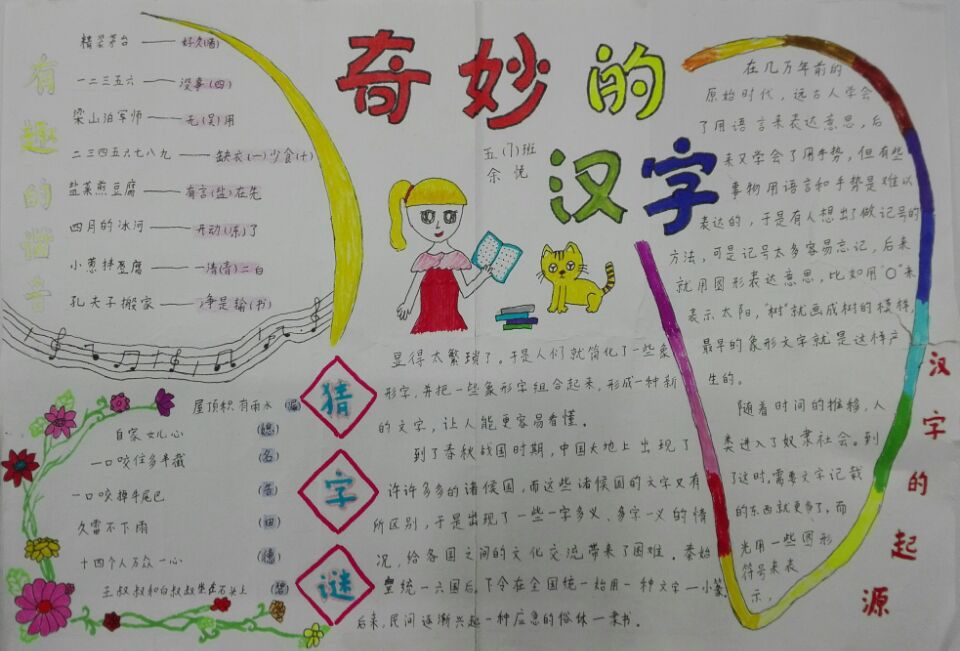 奇妙的
汉字
五(1)班
余悦
有趣的谐音
精装茅台——好久(酒)
一二三五六——没事(四)
梁山泊军师——无(吴)用
二三四五六七八九——缺衣(一)少食(十)
盐菜煎豆腐——有言(盐)在先
四月的冰河——开动(冻)了
小葱拌豆腐——一清(青)二白
孔夫子搬家——净是输(书)
猜字谜
屋顶积有雨水(漏)
自家女儿心
一口咬住多半截(名)
一口咬掉牛尾巴(告)
久雷不下雨(田)
十四个人万众一心(德)
王叔叔和白叔叔坐在石头上(碧)
汉字的起源
在几万年前的
原始时代，远古人学会
了用语言来表达意思，后
来又学会了用手势，但有些
事物用语言和手势是难以
表达的，于是有人想出了做记号的
方法，可是记号太多容易忘记，后来
就用图形表达意思，比如用"○"来
表示太阳，"树"就画成树的模样，
最早的象形文字就是这样产
生的。
随着时间的推移，人
类进入了奴隶社会。到
了这时，需要文字记载
的东西就更多了，而
光用一些图形
符号来表
示，
显得太繁琐了。于是人们就简化了一些象
形字，并把一些象形字组合起来，形成一种新
的文字，让人能更容易看懂。
到了春秋战国时期，中国大地上出现了
许许多多的诸侯国，而这些诸侯国的文字又有
所区别，于是出现了一些一字多义、多字一义的情
况，给各国之间的文化交流带来了困难。秦始
皇统一六国后，下令在全国统一始用一种文字—小篆
后来，民间逐渐兴起一种应急的俗体—隶书。